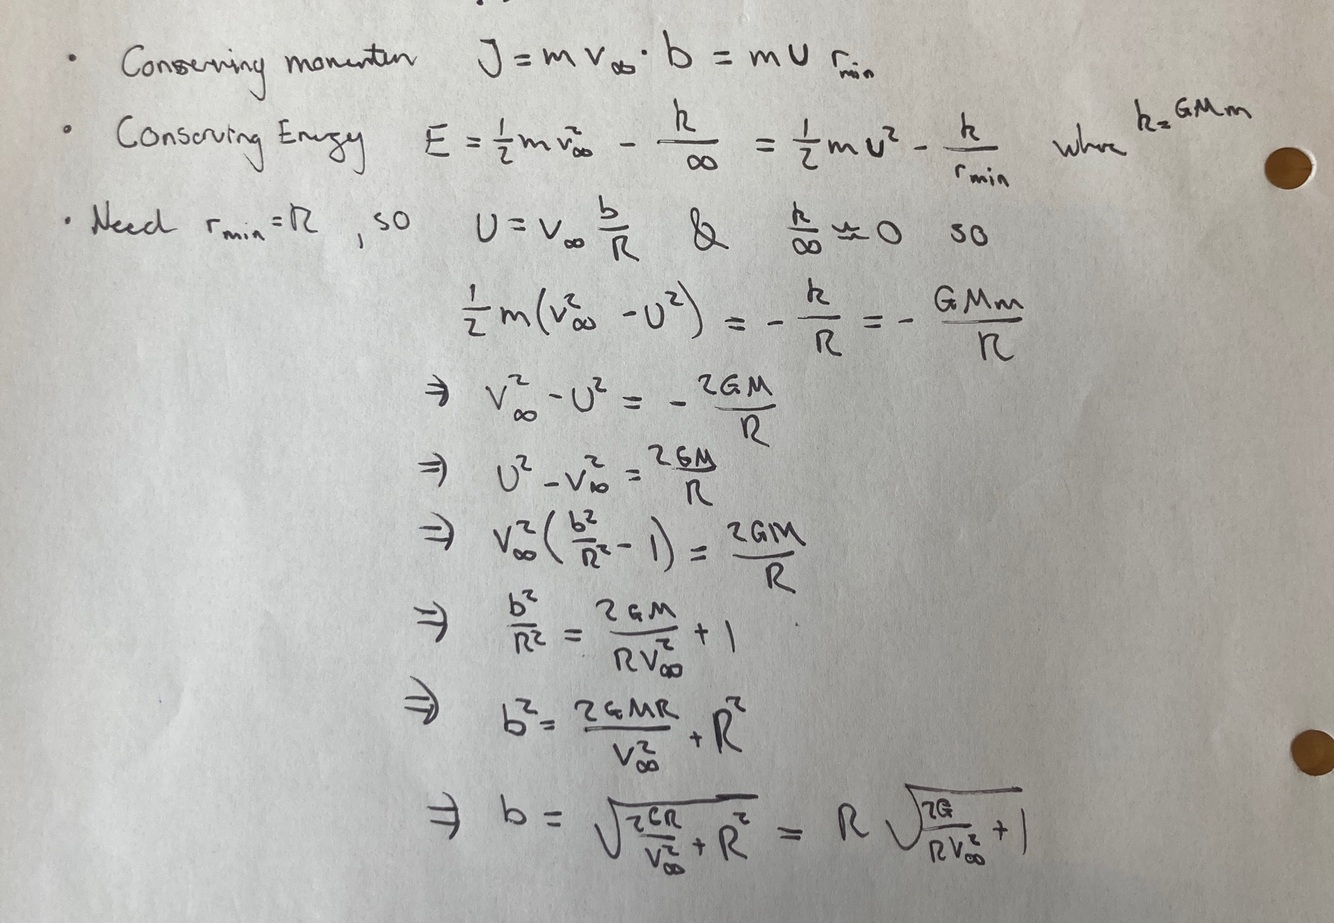 • Conserving momentum J = m v∞ · b = m υ r_min
• Conserving Energy E = ½ m v∞² - k/∞ = ½ m υ² - k/r_min where k = GMm
• Need r_min = R , so υ = v∞ b/R & k/∞ ≈ 0 so
½ m (v∞² - υ²) = - k/R = - GMm/R
⇒ v∞² - υ² = - 2GM/R
⇒ υ² - v∞² = 2GM/R
⇒ v∞² (b²/R² - 1) = 2GM/R
⇒ b²/R² = 2GM/(R v∞²) + 1
⇒ b² = 2GMR/v∞² + R²
⇒ b = √(2GR/v∞² + R²) = R √(2G/(R v∞²) + 1)